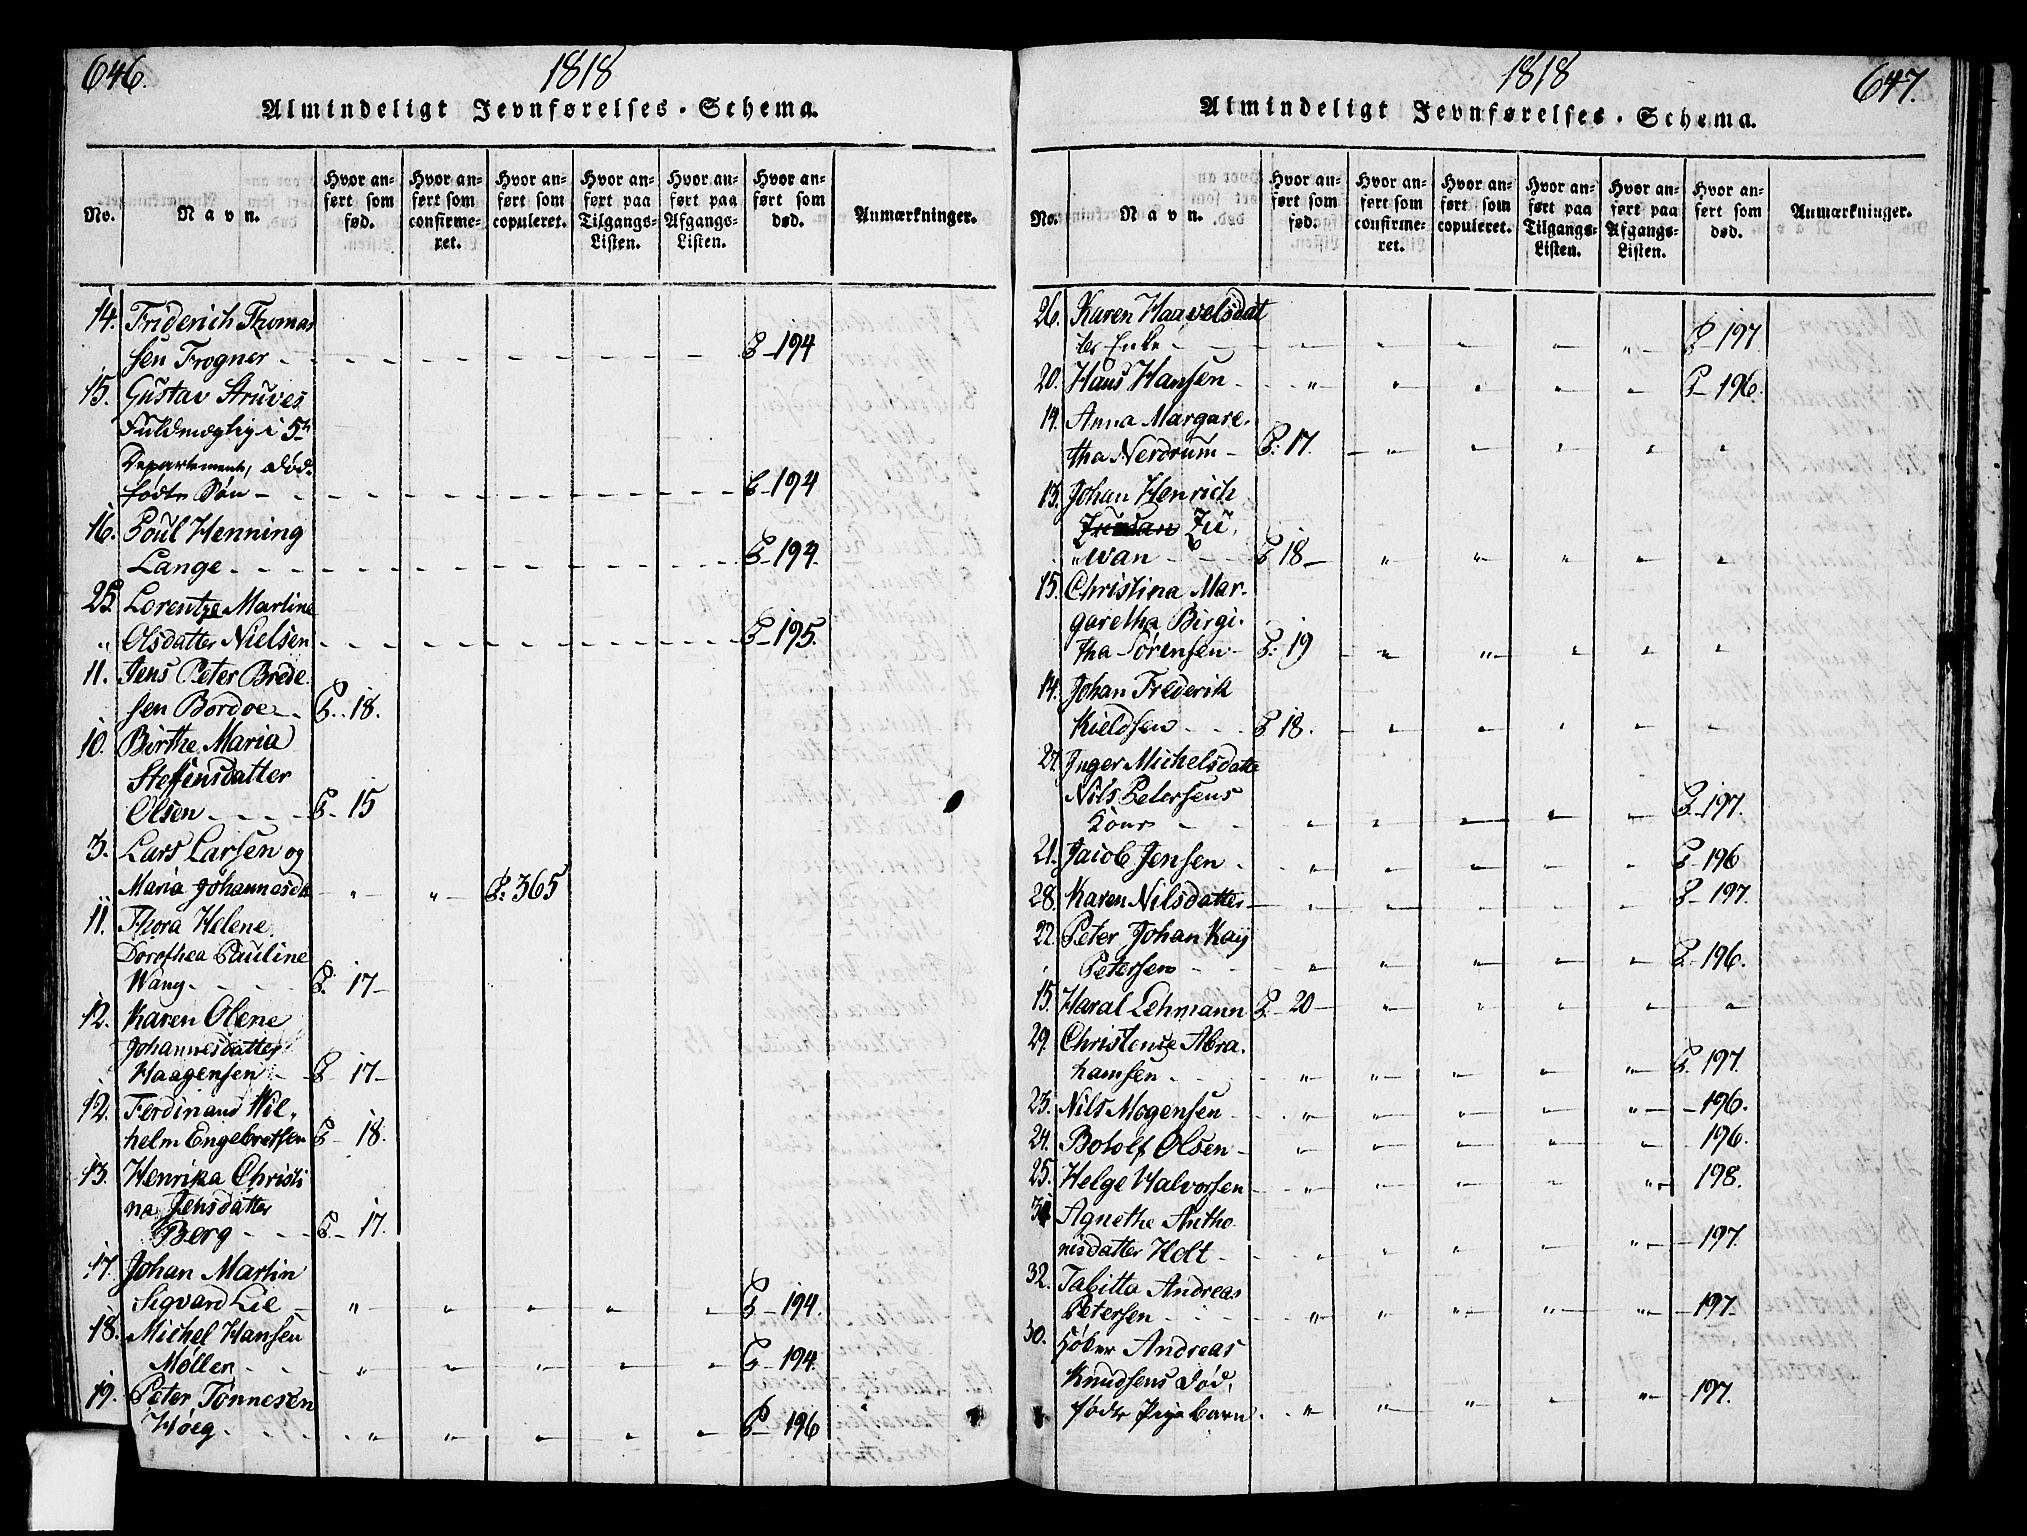 646.
1818
Almindeligt Jevnførelses-Schema.
No.
Navn.
Hvor anført som fød.
Hvor anført som confirmeret.
Hvor anført som copuleret.
Hvor anført paa Tilgangs-Listen.
Hvor anført paa Afgangs-Listen.
Hvor anført som død.
Anmærkninger.
14. Friderich Thomas
sen Frogner - P-194
15. Gustav Struves
Fuldmægtig i 5te
Departement, død-
fødte Søn - P-194
16. Poul Henning
Lange - P-194.
25. Lorentze Martine
" Olsdatter Nielsen P-195.
11. Jens Peter Brede
sen Bordoe - P. 18.
10. Birthe Maria
Steffensdatter
Olsen - P- 15
3. Lars Larsen og
Maria Johannesda " " P: 365
11. Thora Helene
Dorothea Pauline
Wang - P. 17-
12. Karen Olene
Johannesdatter
Haagensen - P- 17-
12. Ferdinand Wil-
helm Engebretsen P- 18.
13. Henrika Christi
na Jensdatter
Berg - P- 17.
17. Johan Martin
Sigvard Lie - " " " " " P-194.
18. Michel Hansen
Møller - " " " " " P-194.
19. Peter Tønnesen
Høeg - " " " " " P- 196
1818
647.
Almindeligt Jevnførelses-Schema.
No.
Navn.
Hvor anført som fød.
Hvor anført som confirmeret.
Hvor anført som copuleret.
Hvor anført paa Tilgangs-Listen.
Hvor anført paa Afgangs-Listen.
Hvor anført som død.
Anmærkninger.
26. Karen Haavelsdat
ter Enke - " " " " " P 197
20. Hans Hansen - " " " " " P-196.
14. Anna Margare-
tha Nerdrum - P. 17. " " " " "
13. Johan Henrich
Zu-
"wan - P 18- " " " " "
15. Christina Mar-
garetha Birgi-
tha Sørensen - P. 19 " " " " "
14. Johan Frederik
Kieldsen - P 18. " " " " "
27. Inger Michelsdatte
Nils Petersens
Kone - " " " " " P-197.
21. Jacob Jensen - " " " " " P-196
28. Karen Nilsdatter - " " " " " P-197.
22. Peter Johan Kay
Petersen - " " " " " P-196.
15. Haral Lehmann P- 20- " " " " "
29. Christense Abra-
hamsen - " " " " " P. 197.
23. Nils Mogensen - " " " " " -196.
24. Botolf Olsen - " " " " " 196.
25. Helge Halvorsen - " " " " " 198.
31 Agnethe Antho
nisdatter Holt - " " " " " -197.
32. Tabitta Andreas
Petersen - " " " " " -197.
30. Høker Andreas
Knudsens død-
fødte Pige barn - " " " " " 197.